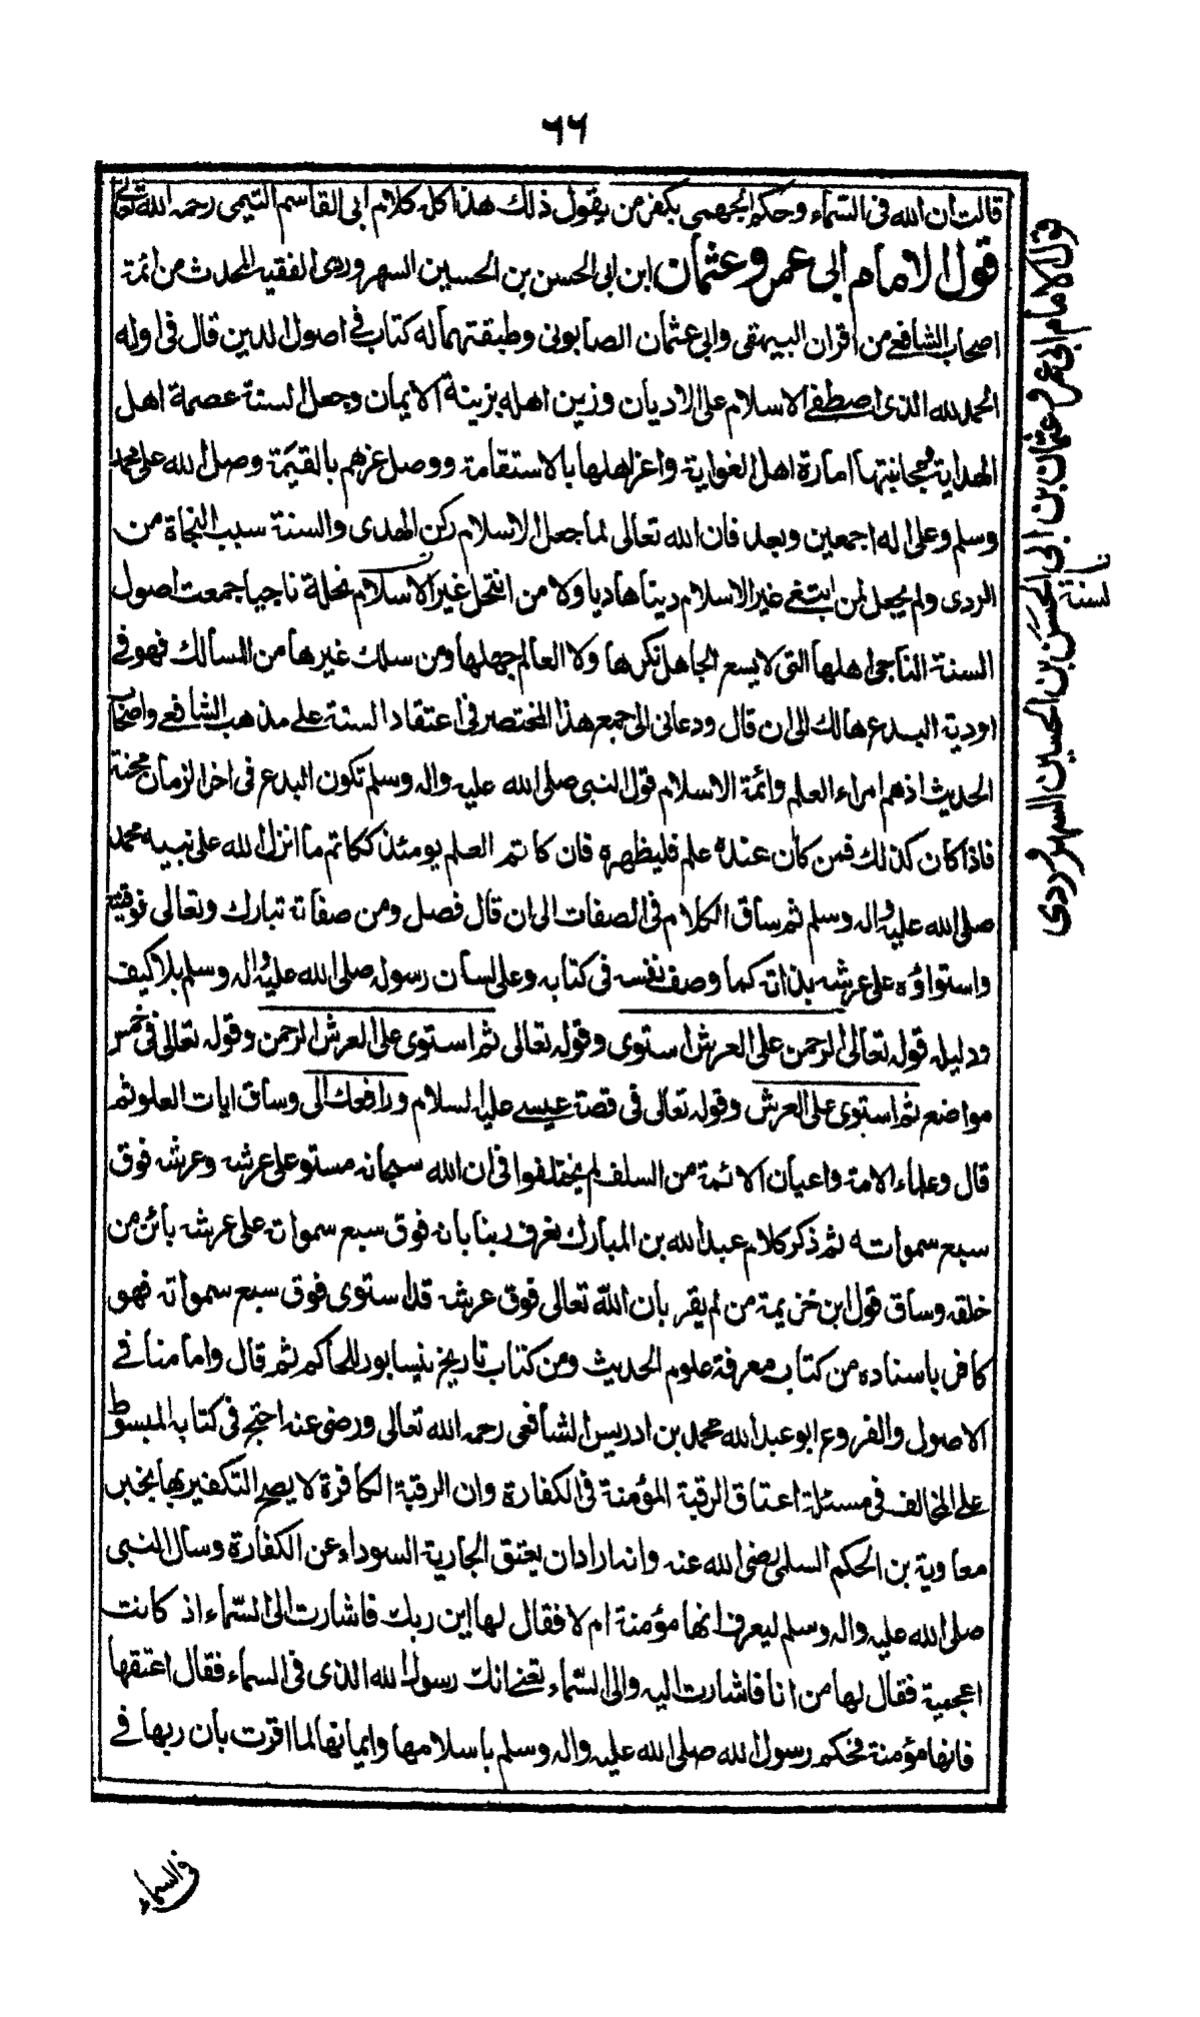 ٦٦
قالت ان الله فى السماء وحكم الجهمى بكفر من يقول ذلك هذا كله كلام ابى القاسم التيمى رحمه الله تعالى
قول الامام ابى عمرو عثمان ابن ابى الحسن بن الحسين السهروردى الفقيه المحدث من ائمة
اصحاب الشافعے من اقران البيهقى وابى عثمان الصابونى وطبقتهما له كتاب فے اصول الدين قال فى اوله
الحمد لله الذى اصطفے الاسلام على الاديان وزين اهله بزينة الايمان وجعل السنة عصمة اهل
الهداية ومجانبتها امارة اهل الغواية واعز اهلها بالاستقامة ووصل عزهم بالقيمة وصلى الله على محمد
وسلم وعلى اله اجمعين وبعد فان الله تعالى لما جعل الاسلام ركن الهدى والسنة سبب النجاة من
الردى ولم يجعل لمن ابتغے غير الاسلام دينا هاديا ولا من انتحل غير الاسلام نحلة ناجيا جمعت اصول
السنة الناجى اهلها التى لا يسع الجاهل نكرها ولا العالم جهلها ومن سلك غيرها من المسالك فهو فے
اودية البدع هالك الى ان قال ودعانى الى جمع هذا المختصر فى اعتقاد السنة علے مذهب الشافعے واصحاب
الحديث اذهم امراء العلم وائمة الاسلام قول النبى صلى الله عليه واله وسلم تكون البدع فى اخر الزمان محنة
فاذا كان كذلك فمن كان عنده علم فليظهره فان كاتم العلم يومئذ ككاتم ما انزل الله على نبيه محمد
صلى الله عليه واله وسلم ثم ساق الكلام فى الصفات الى ان قال فصل ومن صفاته تبارك وتعالى فوقيته
واستواؤه على عرشه بذاته كما وصف نفسه فى كتابه وعلى لسان رسوله صلى الله عليه واله وسلم بلا كيف
ودليله قوله تعالى الرحمن على العرش استوى وقوله تعالى ثم استوى على العرش الرحمن وقوله تعالى فى خمس
مواضع ثم استوى على العرش وقوله تعالى فى قصة عيسے عليه السلام ورافعك الى وساق ايات العلو ثم
قال وعلماء الامة واعيان الائمة من السلف لم يختلفوا فى ان الله سبحانه مستو على عرشه وعرشه فوق
سبع سمواته ثم ذكر كلام عبد الله بن المبارك نعرف ربنا بانه فوق سبع سمواته على عرشه بائن من
خلقه وساق قول ابن خزيمة من لم يقر بان الله تعالى فوق عرشه قد استوى فوق سبع سمواته فهو
كافر باسناده من كتاب معرفة علوم الحديث ومن كتاب تاريخ نيسابور للحاكم ثم قال وامامنا فے
الاصول والفروع ابو عبد الله محمد بن ادريس الشافعى رحمه الله تعالى ورضى عنه احتج فى كتابه المبسوط
علے المخالف فى مسئلة اعتاق الرقبة المؤمنة فى الكفارة وان الرقبة الكافرة لا يصح التكفير بها بخبر
معاوية بن الحكم السلمى رضى الله عنه وانه اراد ان يعتق الجارية السوداء عن الكفارة وسال النبى
صلى الله عليه واله وسلم ليعرف انها مؤمنة ام لا فقال لها اين ربك فاشارت الى السماء اذ كانت
اعجمية فقال لها من انا فاشارت اليه والى السماء تعنے انك رسول الله الذى فى السماء فقال اعتقها
فانها مؤمنة فحكم رسول الله صلى الله عليه واله وسلم باسلامها وايمانها لما اقرت بان ربها فے
فى السماء
قول الامام ابى عمرو عثمان بن ابى الحسن بن الحسين السهروردى